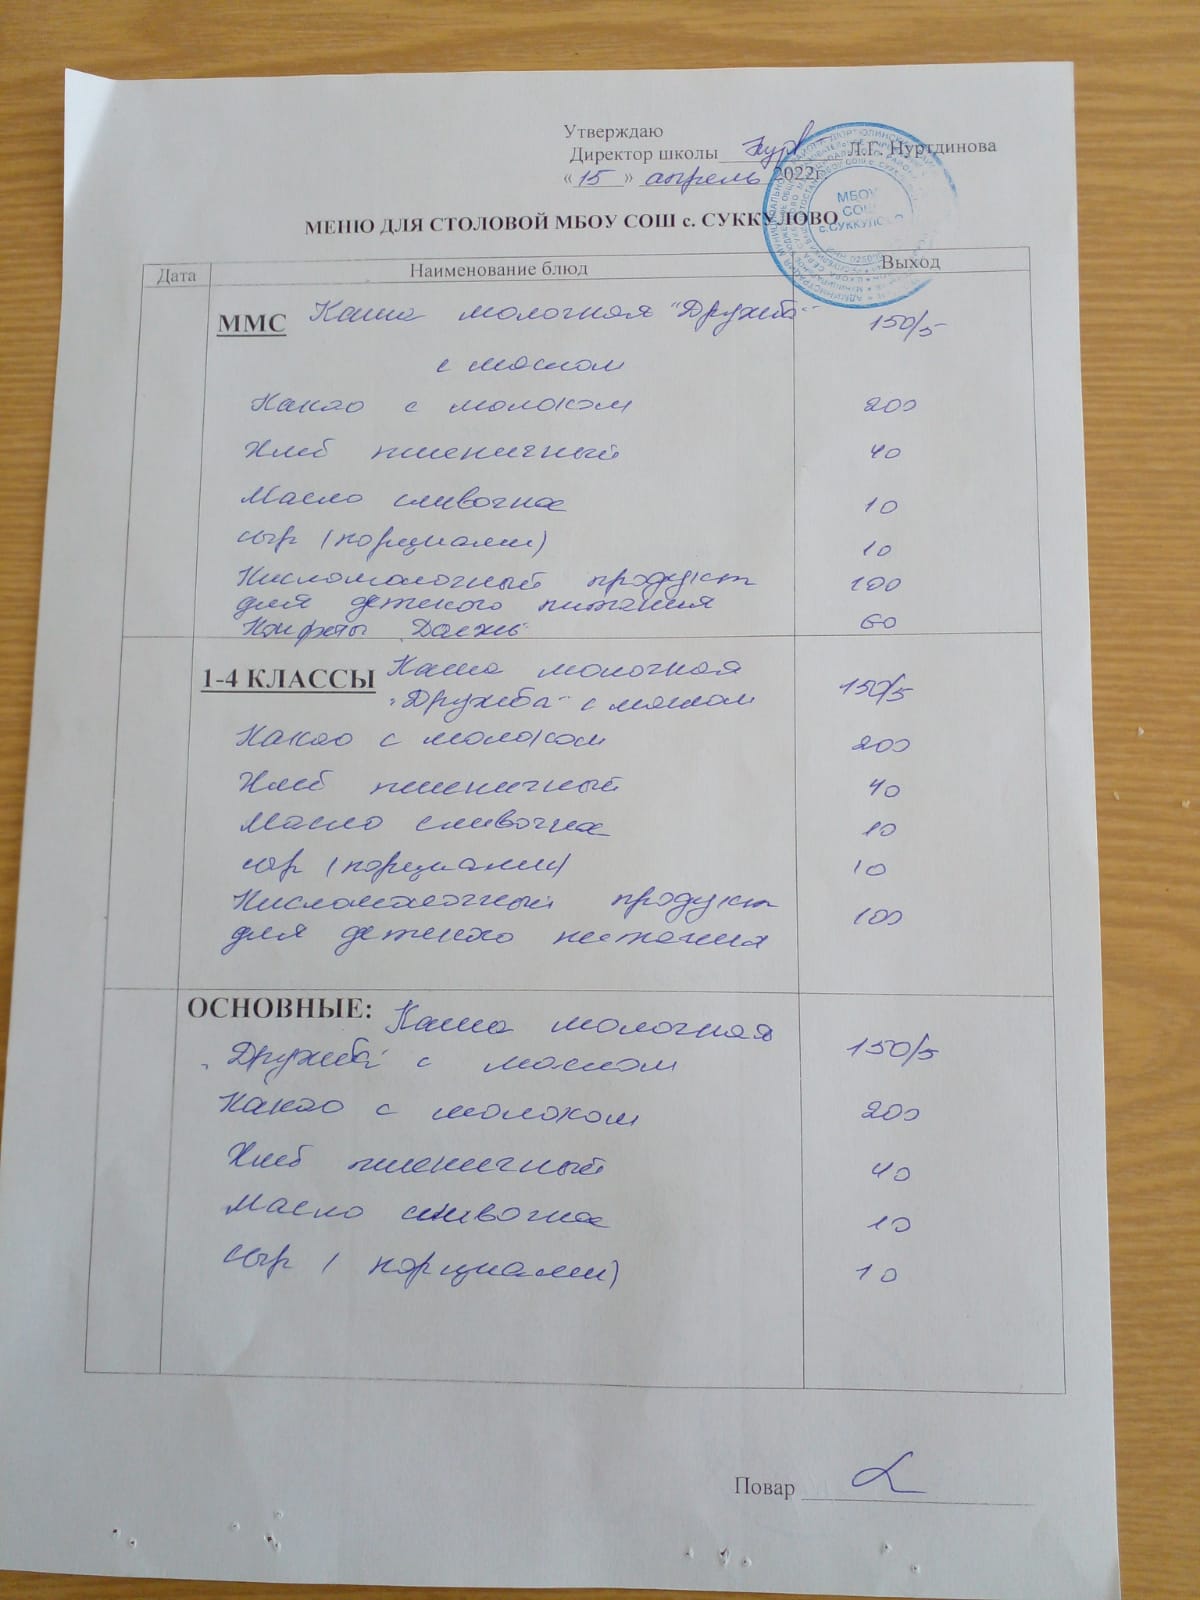 Утверждаю
Директор школы Л.Г. Нуртдинова
«15» апрель 2022г.
МБОУ
СОШ
с.СУККУЛОВО
МЕНЮ ДЛЯ СТОЛОВОЙ МБОУ СОШ с. СУККУЛОВО
Дата Наименование блюд Выход
ММС Каша молочная "Дружба" 150/5
с маслом
Какао с молоком 200
Хлеб пшеничный 40
Масло сливочное 10
сыр (порциями) 10
Кисломолочный продукт 100
для детского питания
Конфеты 60
1-4 КЛАССЫ Каша молочная
"Дружба" с маслом 150/5
Какао с молоком 200
Хлеб пшеничный 40
Масло сливочное 10
сыр (порциями) 10
Кисломолочный продукт 100
для детского питания
ОСНОВНЫЕ: Каша молочная
"Дружба" с маслом 150/5
Какао с молоком 200
Хлеб пшеничный 40
Масло сливочное 10
сыр (порциями) 10
Повар